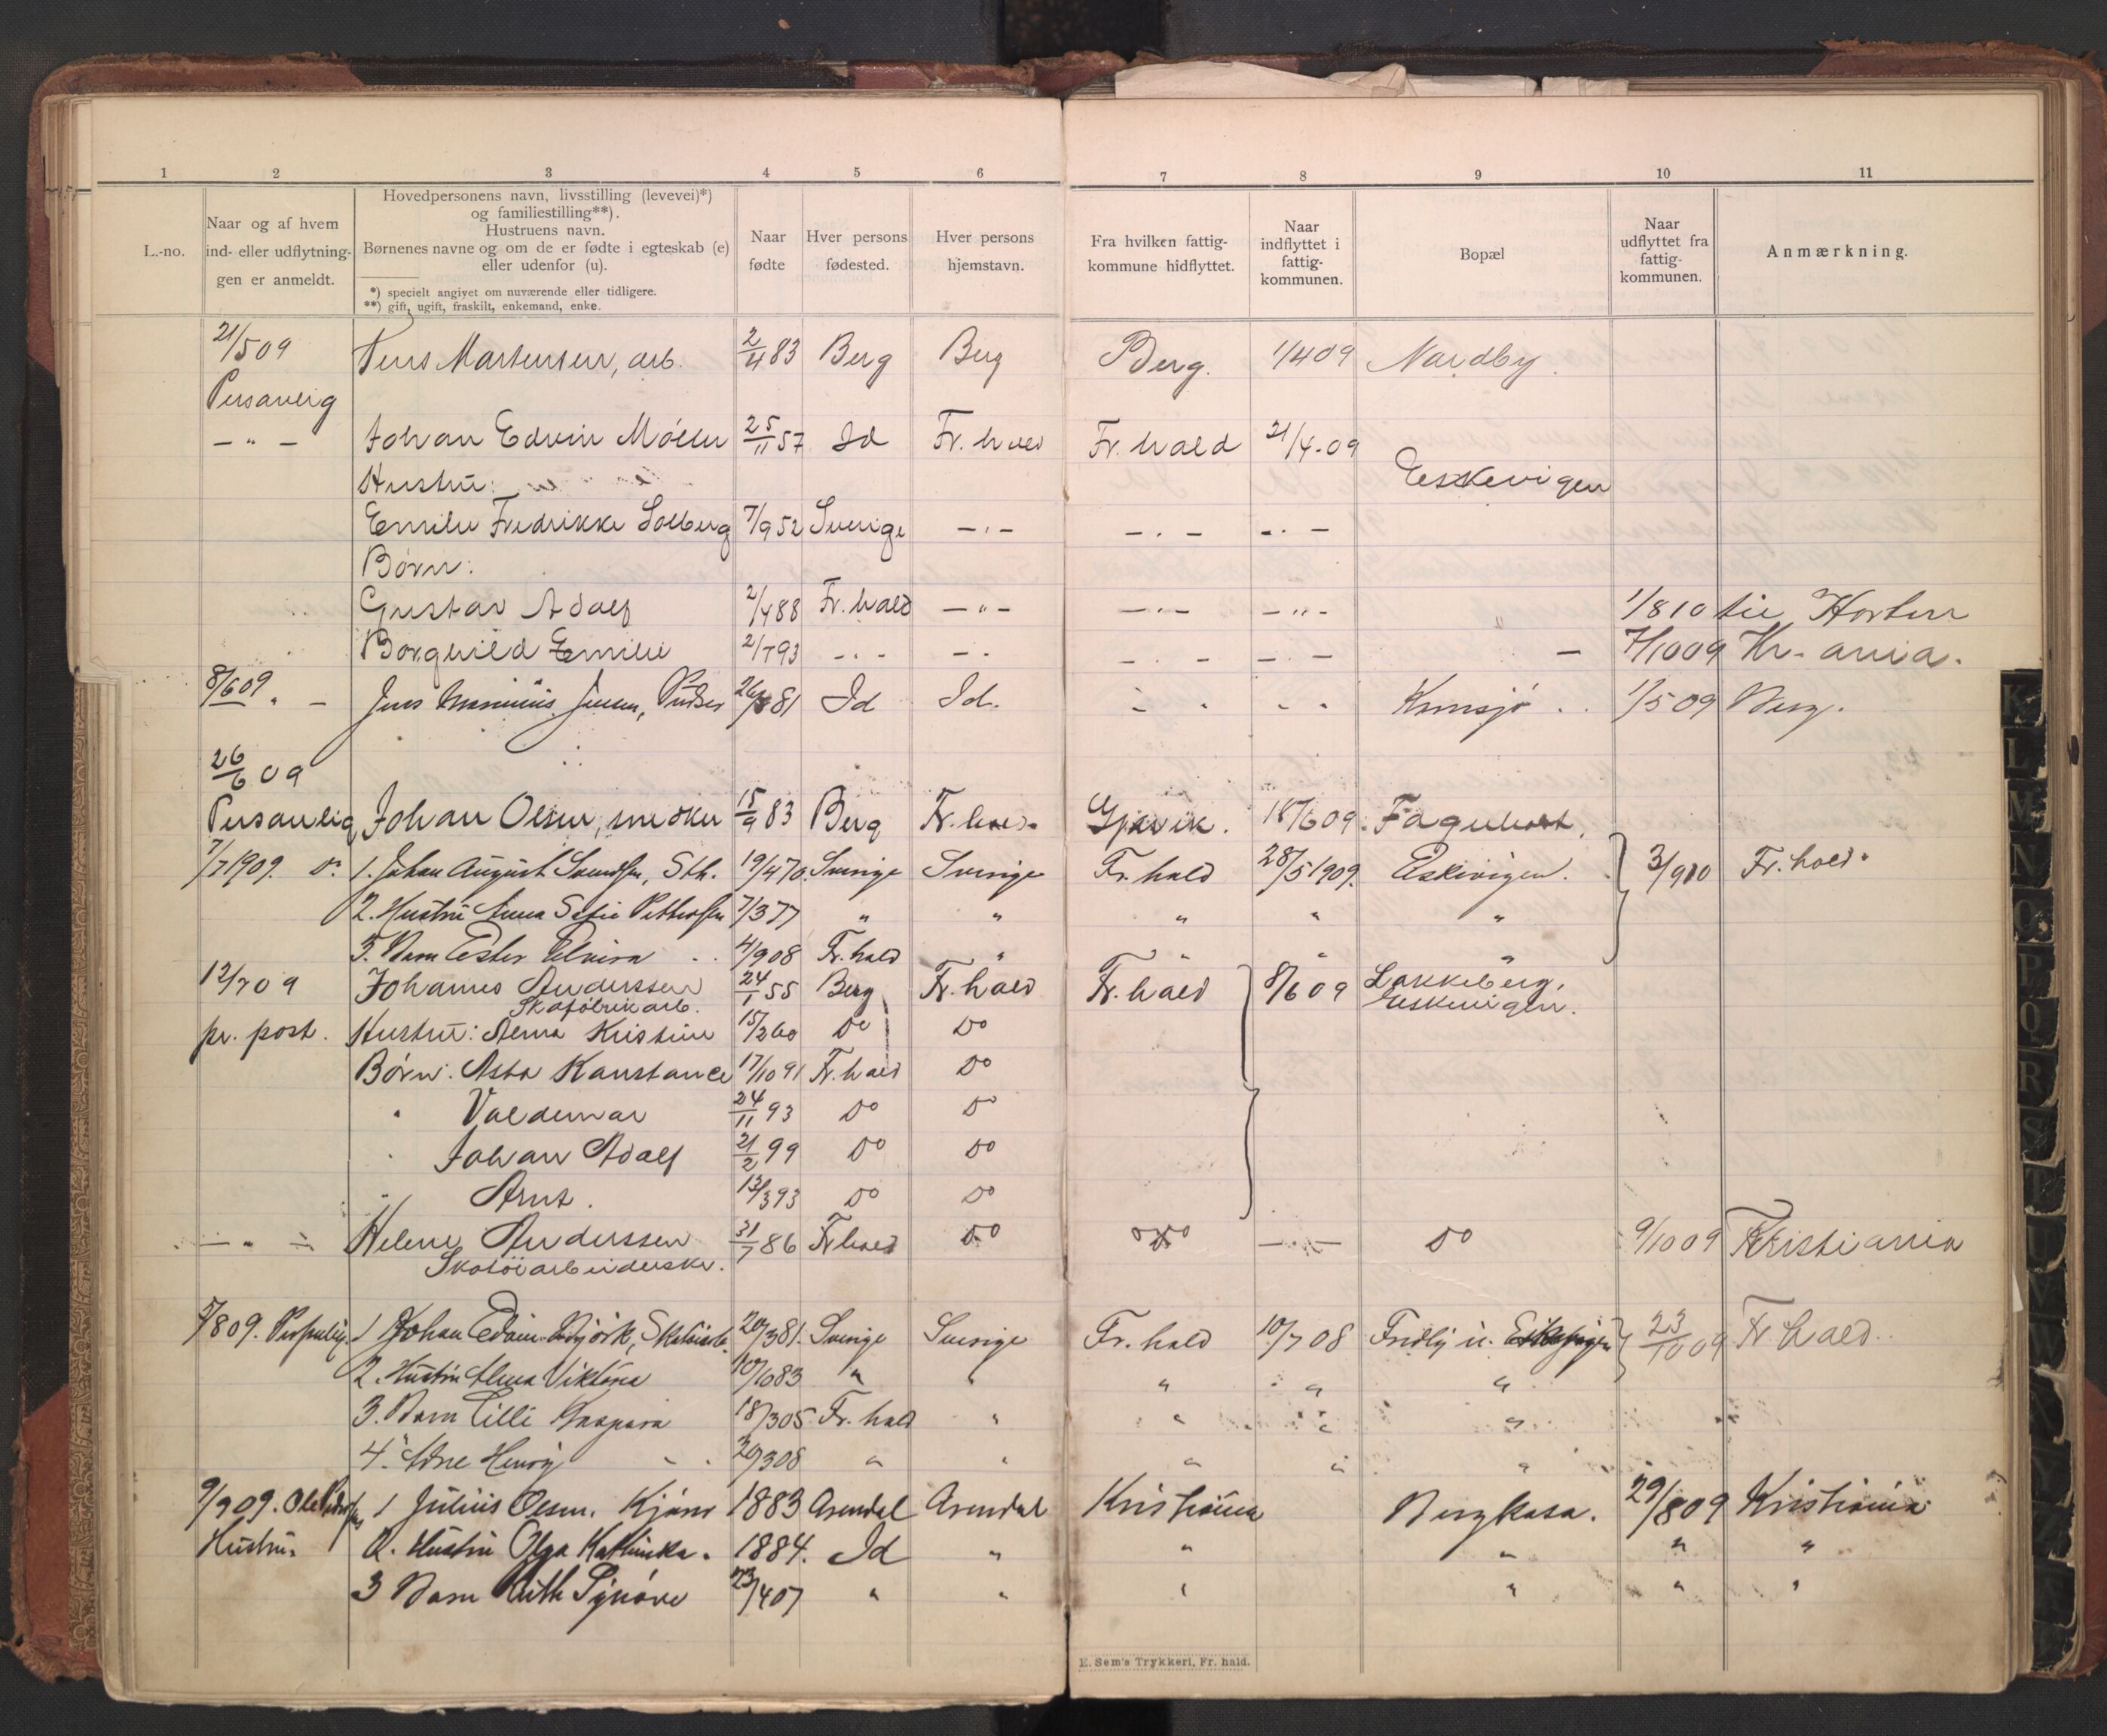 1 2 3 4 5 6 7 8 9 10 11
L.-no.
Naar og af hvem
ind- eller udflytnin-
gen er anmeldt.
Hovedpersonens navn, livsstilling (levevei)*)
og familiestilling**).
Hustruens navn.
Børnenes navne og om de er fødte i egteskab (e)
eller udenfor (u).
*) specielt angivet om nuværende eller tidligere.
**) gift, ugift, fraskilt, enkemand, enke.
Naar
fødte
Hver persons
fødested.
Hver persons
hjemstavn.
Fra hvilken fattig-
kommune hidflyttet.
Naar
indflyttet i
fattig-
kommunen.
Bopæl
Naar
udflyttet fra
fattig-
kommunen.
Anmærkning.
21/5 09 Martensen, arb. 2/4 83 Berg Berg Berg. 1/4 09 Nordby.
Personlig
— " — Johan Edvin Møller 25/11 57 Id Fr. hald Fr. hald 21/4-09
Hustru: Eskevigen
Emilie Fredrikke Solberg 7/9 52 Sverige — " — — " — — " —
Børn:
Gustav Adolf 2/4 88 Fr. hald — " — — " — — " — 1/8 10 til Horten
Borghild Emilie 2/7 93 — " — — " — — " — — " — — 7/10 09 Kr-ania.
8/6 09 " — Jens Jensen, Pudser 26/ 81 Id Id. " " " " Kornsjø 1/5 09 Berg.
26/6 09
Personlig Johan Olsen, snedker 15/9 83 Berg Fr. hald Gjøvik. 18/6 09. Fagerholt.
7/7 1909. do 1. Johan August Svendsen, Sth. 19/4 70. Sverige Sverige Fr. hald 28/5 1909. Eskevigen. 3/9 10 Fr. hald
2. Hustru Anna Sofie Petterssen 7/3 77 " " " " "
3. Barn Ester Elvira 4/9 08 Fr. hald " " " "
12/7 09 Johannes Anderssen 24/1 55 Berg Fr. hald Fr. hald 8/6 09 Lakkeberg,
Skofabrikarb. Eskevigen.
pr. post. Hustru: Anna Kristine 15/2 60 Do Do
Børn: Asta Konstance 17/10 91 Fr. hald Do
" Valdemar 24/11 93 Do Do
" Johan Adolf 21/2 99 Do Do
" Arnt. 12/3 93 Do Do
— " — Helene Anderssen 31/7 86 Fr hald Do Do — " — Do 9/10 09 Kristiania
Skotøiarbeiderske.
5/8 09. Personlig. 1 Johan Edvin Björk, Skotøiarb. 20/3 81. Sverige Sverige Fr. hald 10/7 08 Fredly i. Eskevigen 23/10 09 Fr. hald
2. Hustru Alma Viktoria 10/10 83 " " " " "
3. Barn Lilli 18/3 05 Fr. hald " " " "
4. " Arne Henry 20/3 08 " " " " "
9/9 09. Ole 1 Julius Olsen. Kjører 1883 Arendal Arendal Kristiania Bergkasa. 29/8 09 Kristiania
Hustru. 2. Hustru Olga Kathinka. 1884. Id " " " " "
3 Barn Ruth Synøve 23/4 07 " " " " " "
E. Sem's Trykkeri, Fr. hald.
K L M N O P Q R S T U